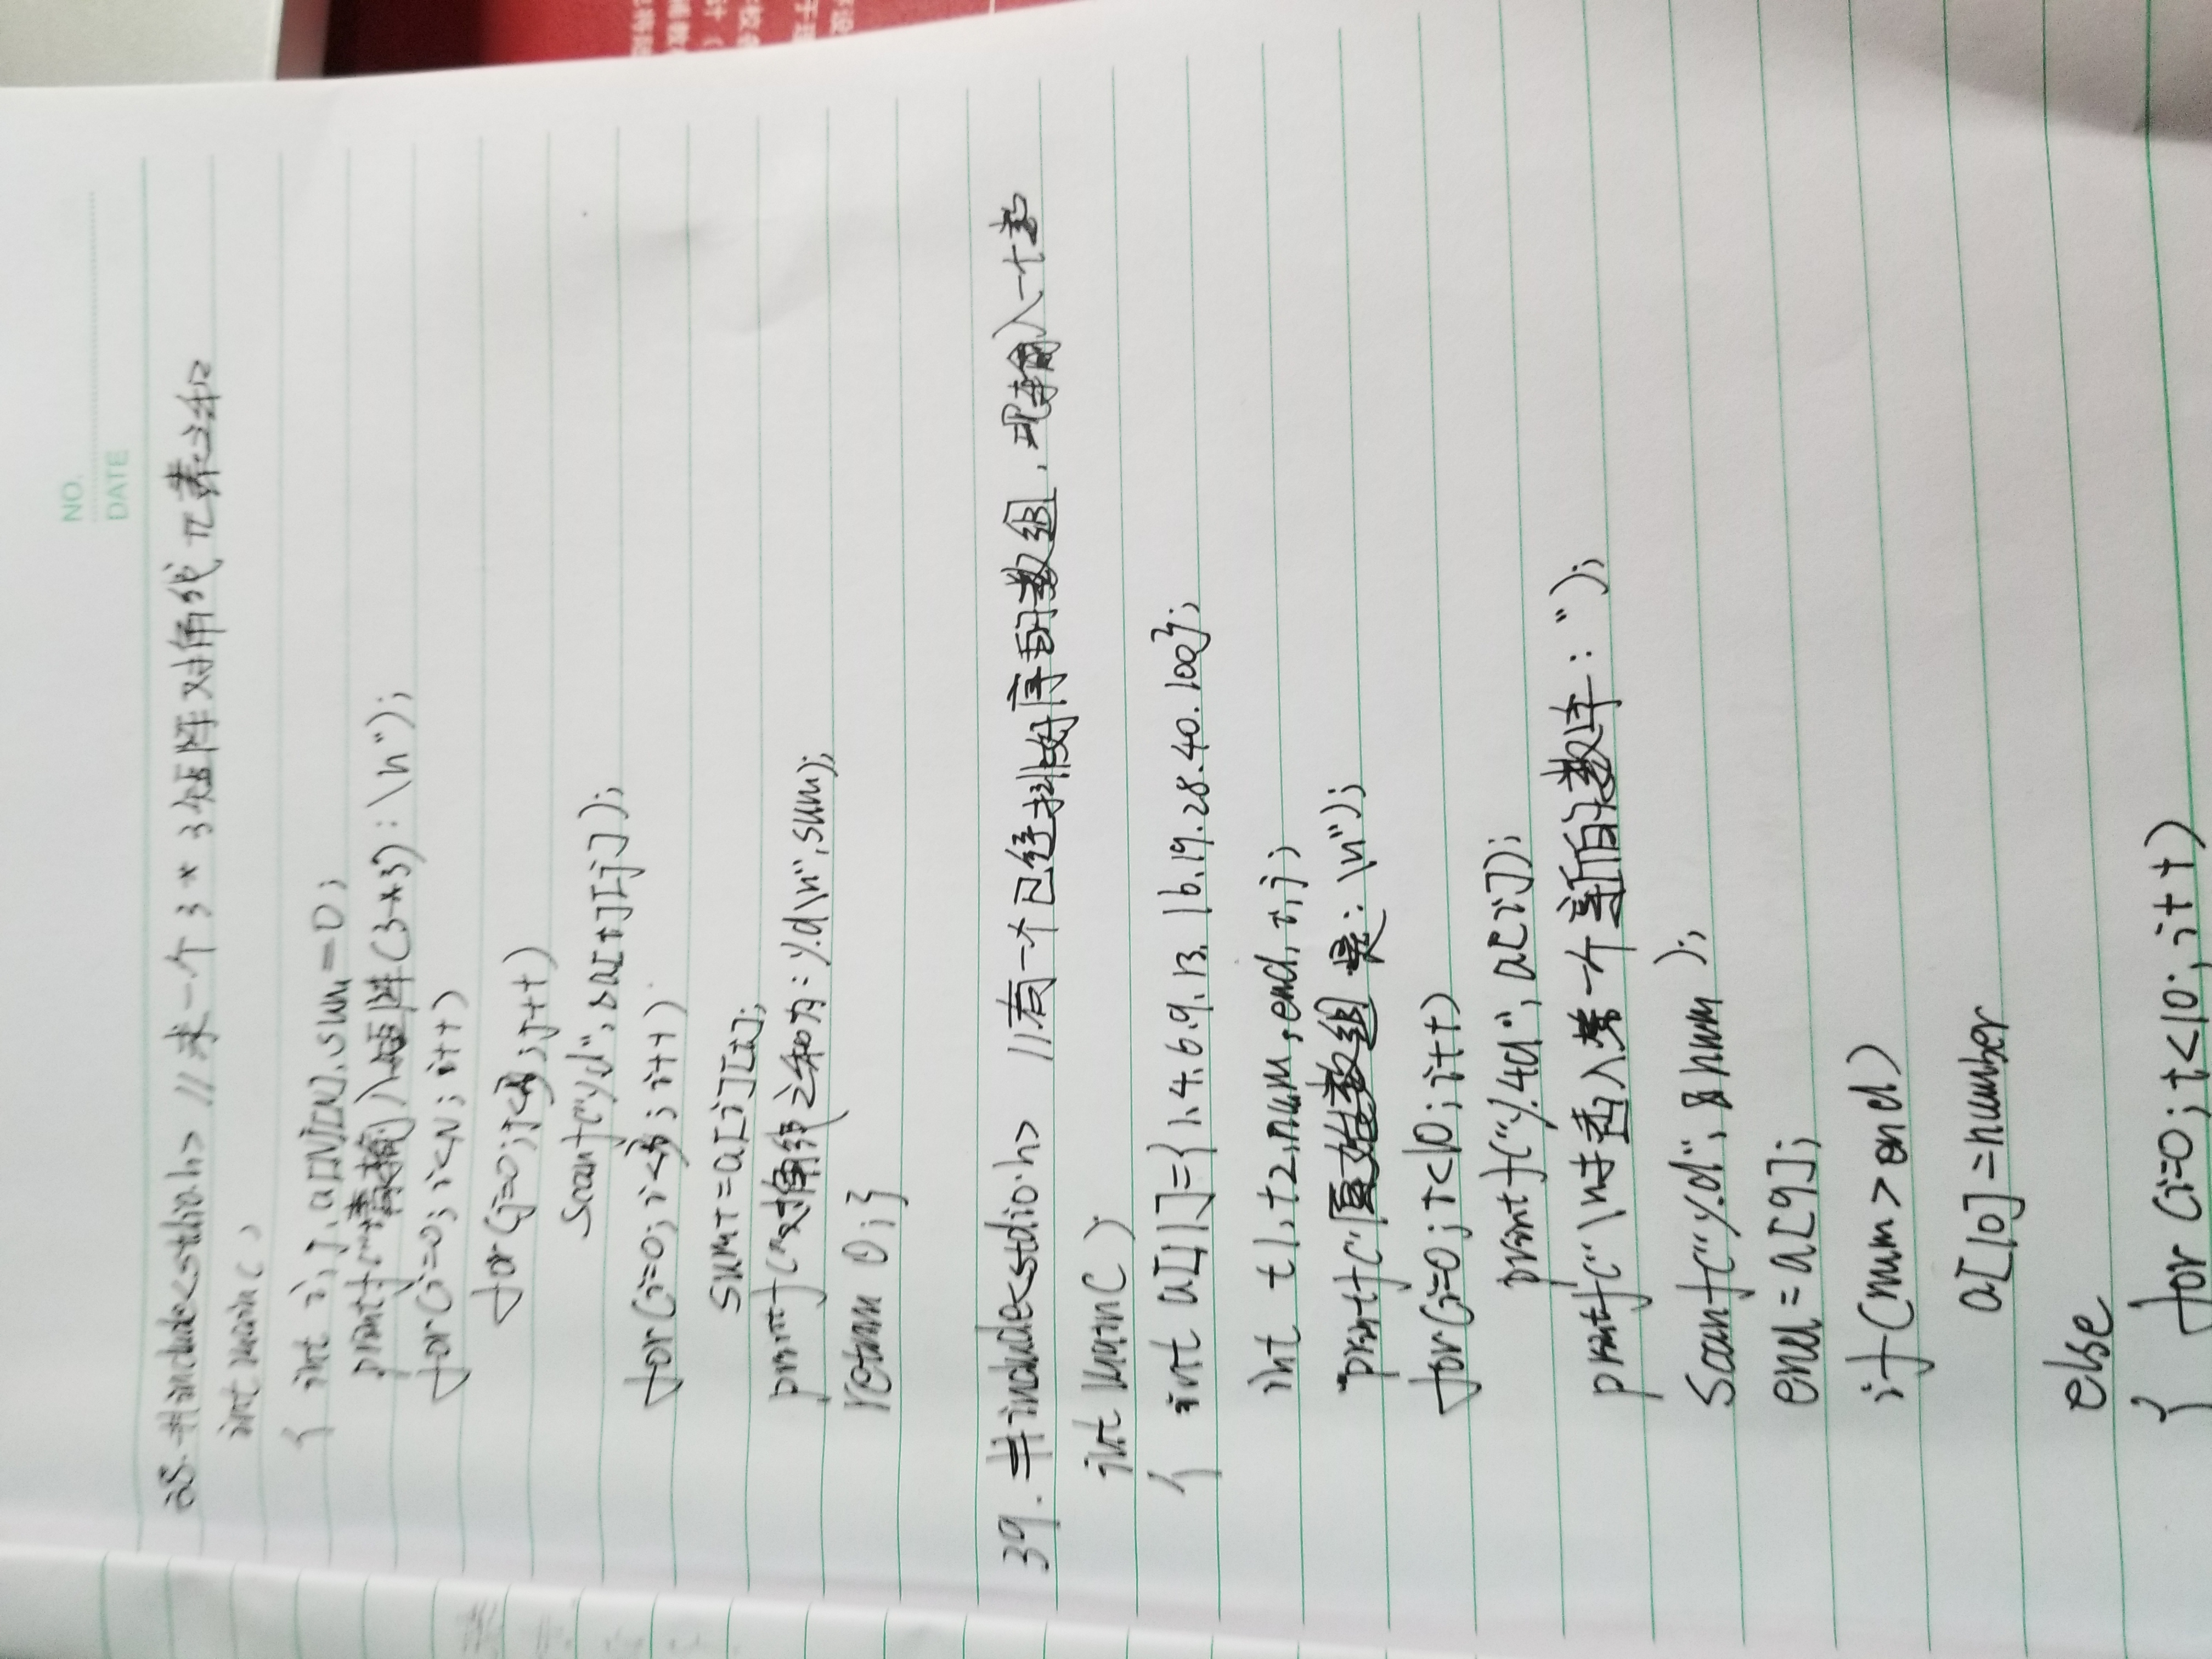 NO.
DATE
38. #include<stdio.h> //求一个3*3矩阵对角线元素之和
int main()
{ int i,j,a[N][N],sum=0;
printf("请输入矩阵(3*3):\n");
for(i=0;i<N;i++)
for(j=0;j<N;j++)
scanf("%d",&a[i][j]);
for(i=0;i<3;i++)
sum+=a[i][i];
printf("对角线之和为:%d\n",sum);
return 0;}
39. #include<stdio.h> //有一个已经排好序的数组,现输入一个数
int main()
{ int a[11]={1,4,6,9,13,16,19,28,40,100};
int t1,t2,num,end,i,j;
printf("原始数组是:\n");
for(i=0;i<10;i++)
printf("%4d",a[i]);
printf("\n插入一个新的数字:");
scanf("%d",&num);
end=a[9];
if(num>end)
a[10]=number
else
{ for(i=0;i<10;i++)